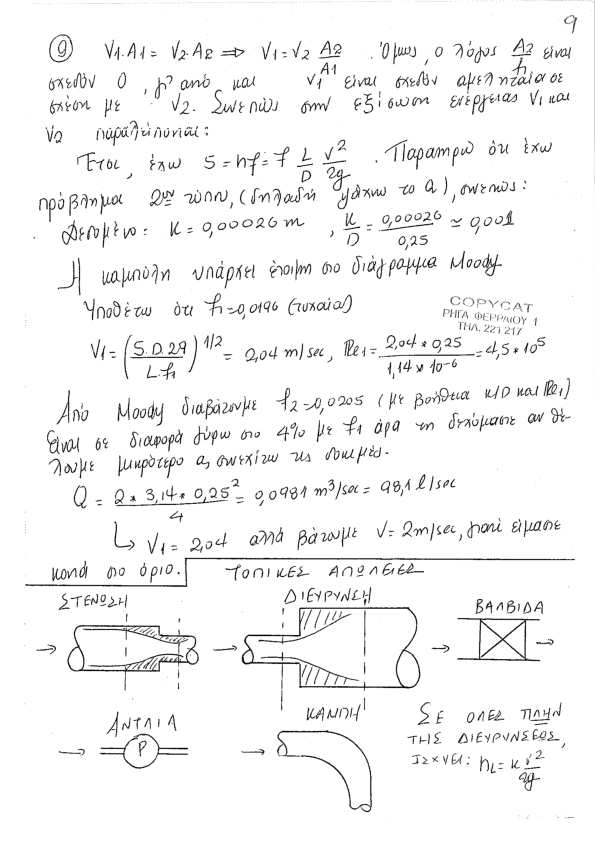 9
⑨ V1·A1 = V2·A2 ⇒ V1 = V2 A2/A1 . Όμως, ο λόγος A2/A1 είναι
σχεδόν 0, γι' αυτό και V1 είναι σχεδόν αμελητέα σε
σχέση με V2. Συνεπώς στην εξίσωση ενέργειας V1 και
V2 παραλείπονται:
Έτσι, έχω S = hf = f L/D V²/2g . Παρατηρώ ότι έχω
πρόβλημα 2ου τύπου, (δηλαδή ψάχνω το Q), συνεπώς:
Δεδομένο: K = 0,00026 m , K/D = 0,00026/0,25 ≃ 0,001
Η καμπύλη υπάρχει έτοιμη στο διάγραμμα Moody
Υποθέτω ότι f1 = 0,0196 (τυχαία)
COPYCAT
ΡΗΓΑ ΦΕΡΡΑΙΟΥ 1
ΤΗΛ. 221 217
V1 = (S.D.2g/L.f1)^1/2 = 2,04 m/sec, Re1 = 2,04 * 0,25/1,14 * 10^-6 = 4,5 * 10^5
Από Moody διαβάζουμε f2 = 0,0205 (με βοήθεια K/D και Re1)
Είναι σε διαφορά γύρω στο 4% με f1 άρα τη δεχόμαστε αν θέ-
λουμε μικρότερο ας συνεχίζω τις δοκιμές.
Q = 2 * 3,14 * 0,25²/4 = 0,0981 m³/sec = 98,1 l/sec
↳ V1 = 2,04 αλλά βάζουμε V = 2m/sec, γιατί είμαστε
κοντά στο όριο.
ΤΟΠΙΚΕΣ ΑΠΩΛΕΙΕΣ
ΣΤΕΝΩΣΗ
ΔΙΕΥΡΥΝΣΗ
ΒΑΛΒΙΔΑ
ΑΝΤΛΙΑ
P
ΚΑΜΠΗ
ΣΕ ΟΛΕΣ ΠΛΗΝ
ΤΗΣ ΔΙΕΥΡΥΝΣΕΩΣ,
ΙΣΧΥΕΙ: hL = K V²/2g